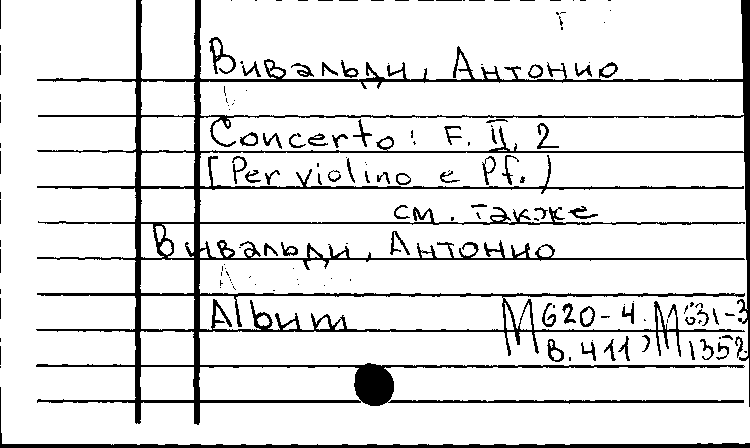 Вивальди, Антонио
Concerto: F. II, 2
[Per violino e Pf.)
см. также
Вивальди, Антонио
Album
М 620-4 ; М 631-3
В. 411 1352